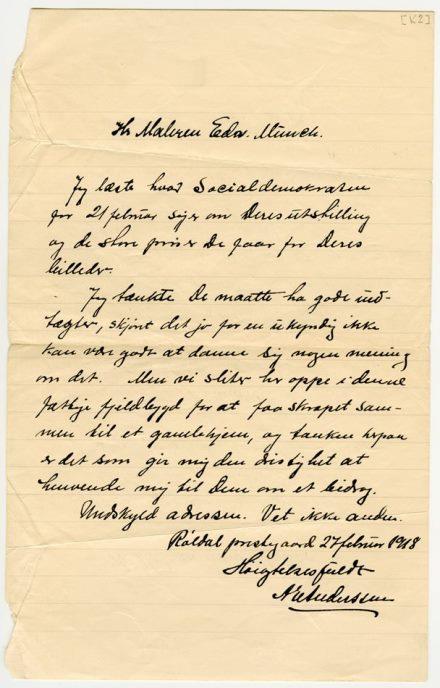 [K2]
Hr Maleren Edv. Munch.
Jeg læste hvad Socialdemokraten
for 21 februar siger om Deres utstilling
og de store priser De faar for Deres
billeder.
Jeg tænkte De maatte ha gode ind-
tægter, skjønt det jo for en ukyndig ikke
kan være godt at danne sig nogen mening
om det. Men vi sliter her oppe i denne
fattige fjeldbygd for at faa skrapet sam-
men til et gamlehjem, og tanken herpaa
er det som gir mig den dristighet at
henvende mig til Dem om et bidrag.
Undskyld adressen. Vet ikke anden.
Röldal prestegaard 27 februar 1918
Høiagtelsesfuldt